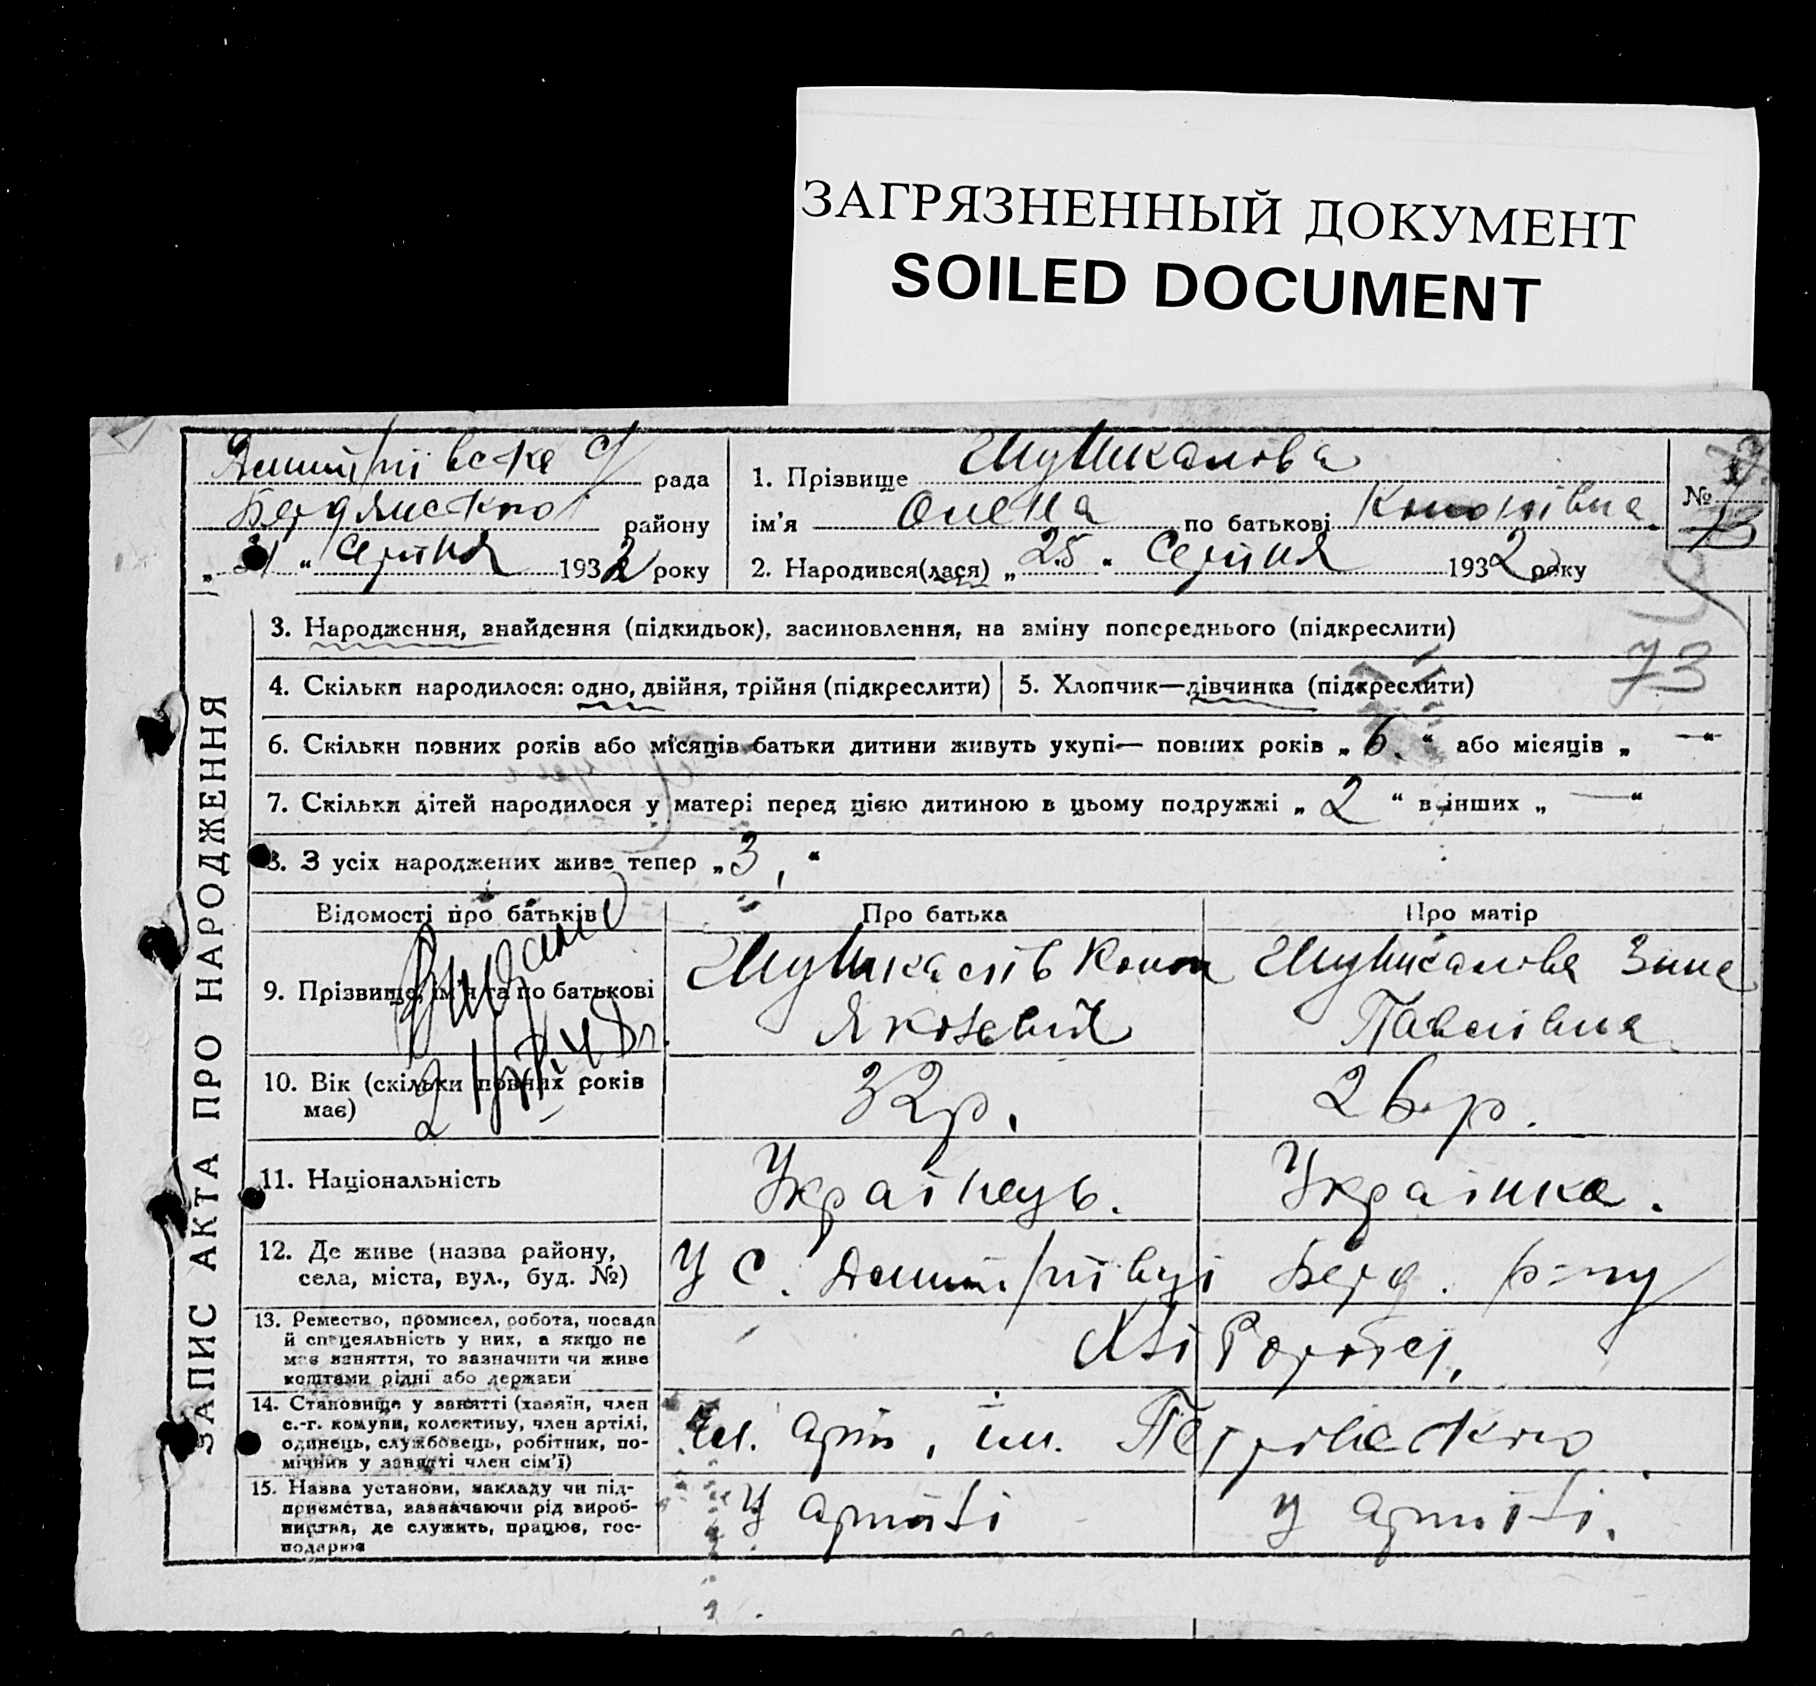 ЗАГРЯЗНЕННЫЙ ДОКУМЕНТ
SOILED DOCUMENT
Дмитрівська с/ рада
Бердянского району
„31“ Серпня 1932 року
1. Прізвище Шушкалова
ім'я Олена по батькові Кононівна.
2. Народився(лася) „25“ Серпня 1932 року
№
73
ЗАПИС АКТА ПРО НАРОДЖЕННЯ
3. Народження, знайдення (підкидьок), засиновлення, на зміну попереднього (підкреслити)
4. Скільки народилося: одно, двійня, трійня (підкреслити)
5. Хлопчик—дівчинка (підкреслити)
6. Скільки повних років або місяців батьки дитини живуть укупі— повних років „6.“ або місяців „—“
7. Скільки дітей народилося у матері перед цією дитиною в цьому подружжі „2“ в інших „—“
8. З усіх народжених живе тепер „3,“
Відомості про батьків
Про батька
Про матір
9. Прізвище, ім'я та по батькові
Шушкалів Конон
Яковевич
Шушкалова Зина
Павлівна
10. Вік (скільки повних років
має)
32 р.
26 р.
11. Національність
Українець.
Українка.
12. Де живе (назва району,
села, міста, вул., буд. №)
У с. Дмитрівці Берд. р-ну
13. Ремество, промисел, робота, посада
й спецеяльність у них, а якщо не
має заняття, то зазначити чи живе
коштами рідні або держави
Хлібороби,
14. Становище у занятті (хазяїн, член
с.-г. комуни, колективу, член артілі,
одинець, службовець, робітник, по-
мічник у занятті член сім'ї)
Чл. арт., ім. Петровского
15. Назва установи, закладу чи під-
приємства, зазначаючи рід вироб-
ництва, де служить, працює, гос-
подарює
У артілі
У артілі.